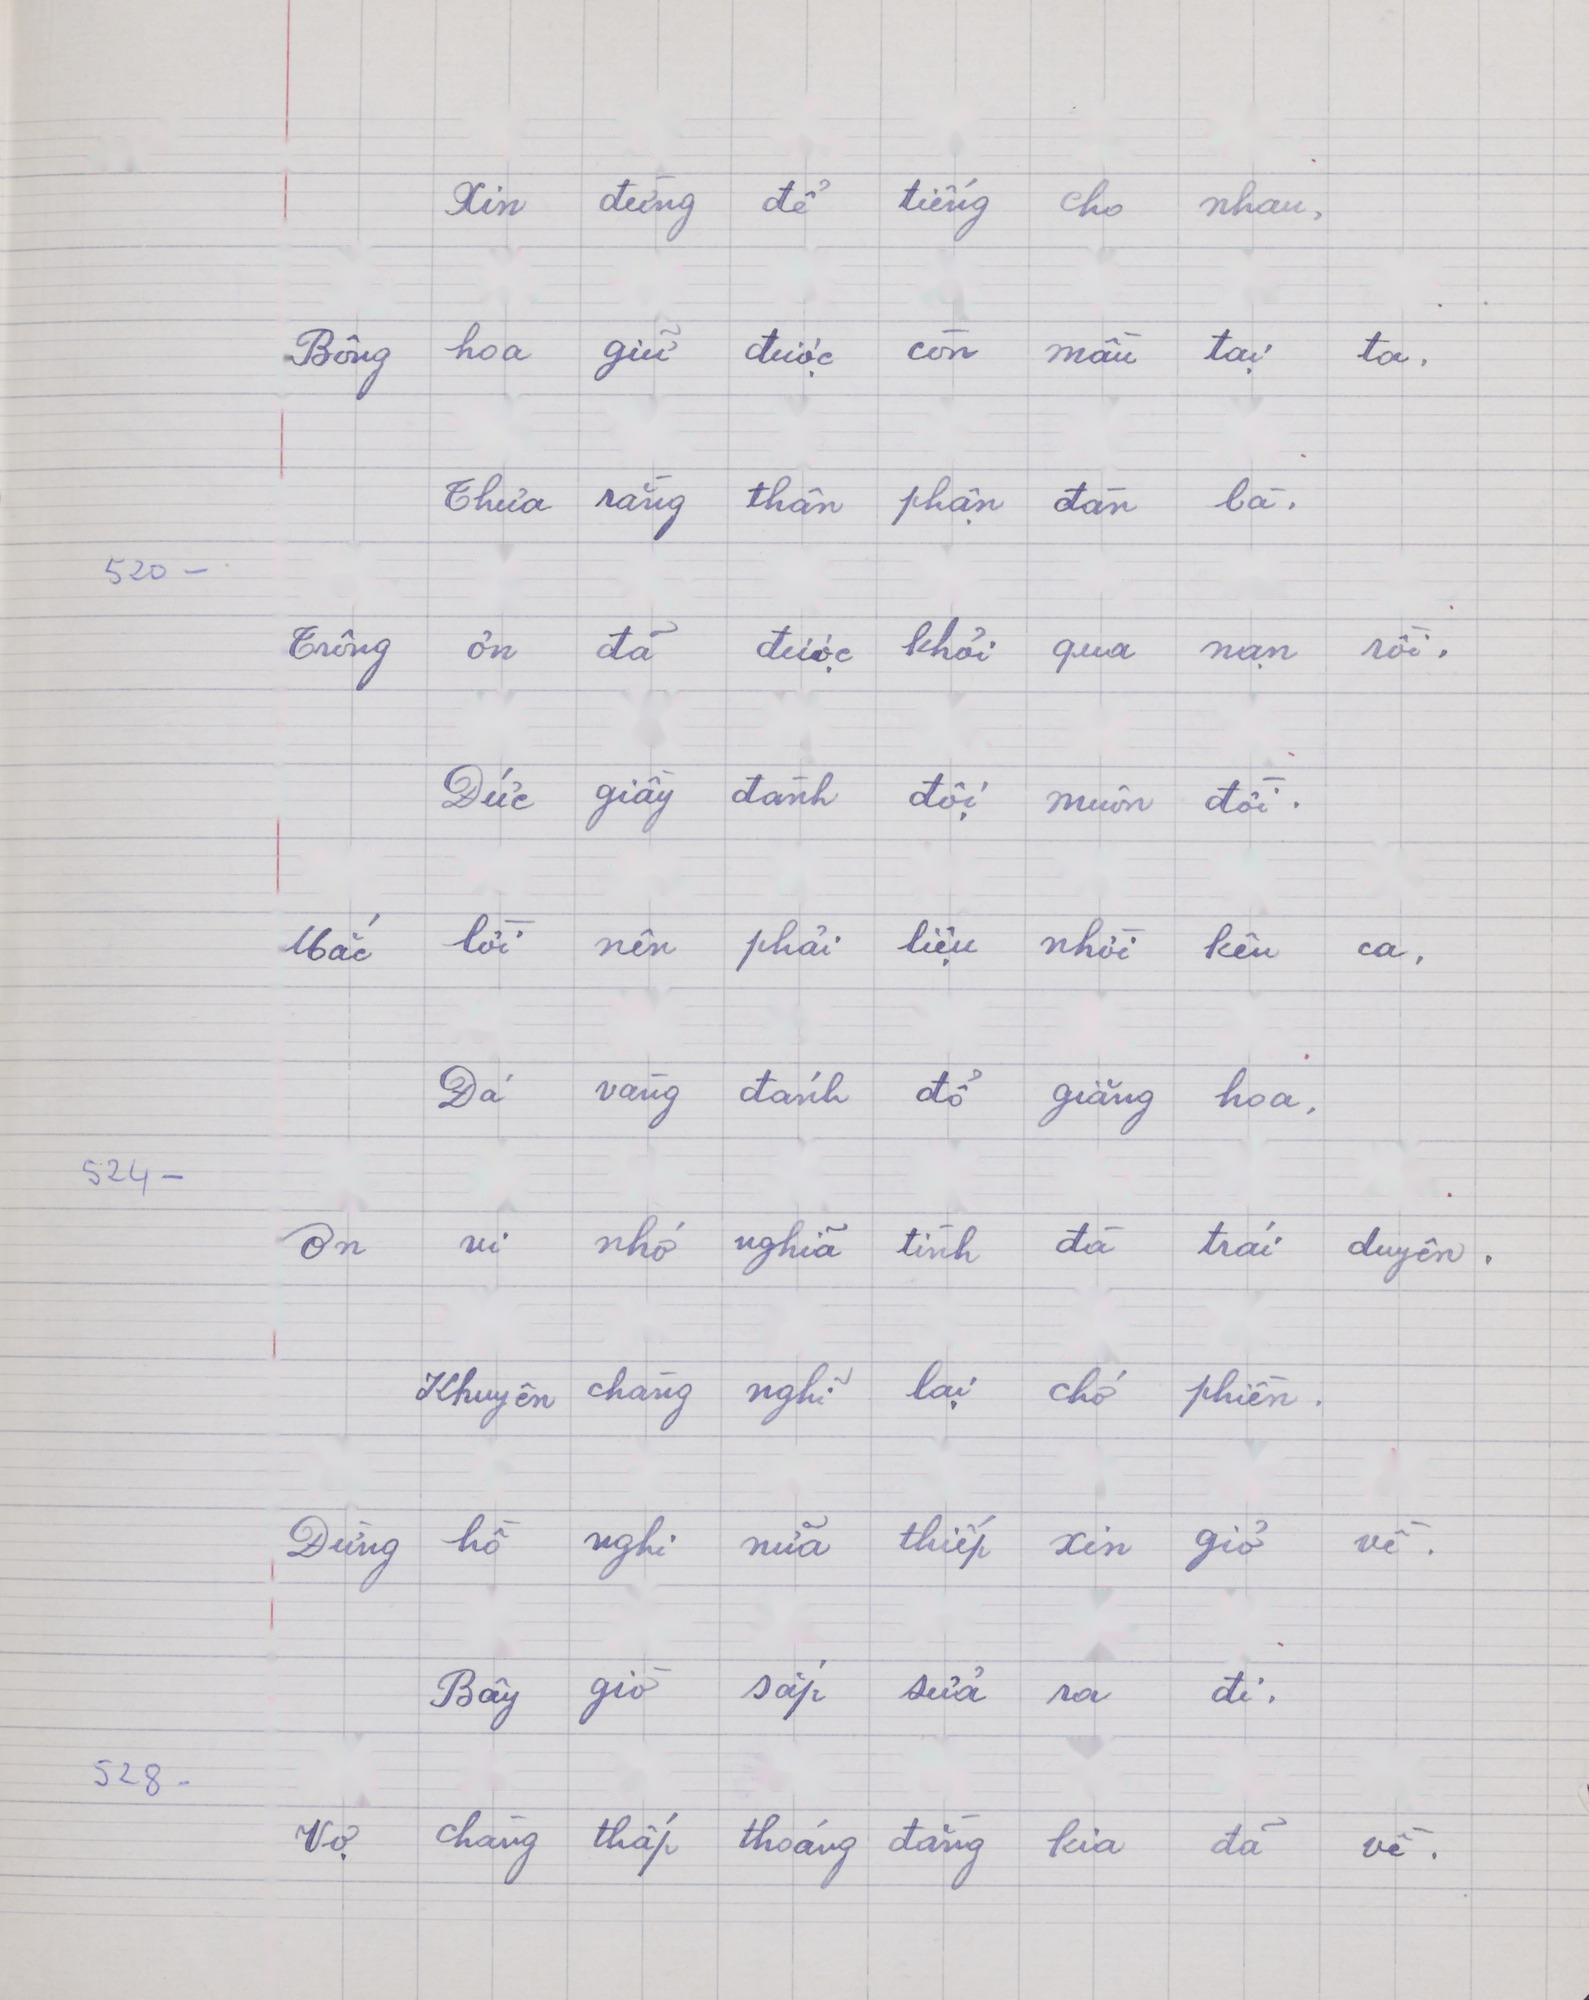 Xin đừng để tiếng cho nhau,
Bông hoa giữ được còn mầu tại ta.
Thưa rằng thân phận đàn bà.
520 -
Trông ơn đã được khỏi qua nạn rồi.
Đức giầy đành đội muôn đồi.
Mắc lời nên phải liệu nhời kêu ca,
Đá vàng đánh đổ giăng hoa,
524 -
Ơn vi nhớ nghĩa tình đà trái duyên.
Khuyên chàng nghĩ lại chớ phiền.
Đừng hồ nghi nữa thiếp xin giở về.
Bây giờ sắp sửa ra đi.
528 -
Vợ chàng thấp thoáng đằng kia đã về.